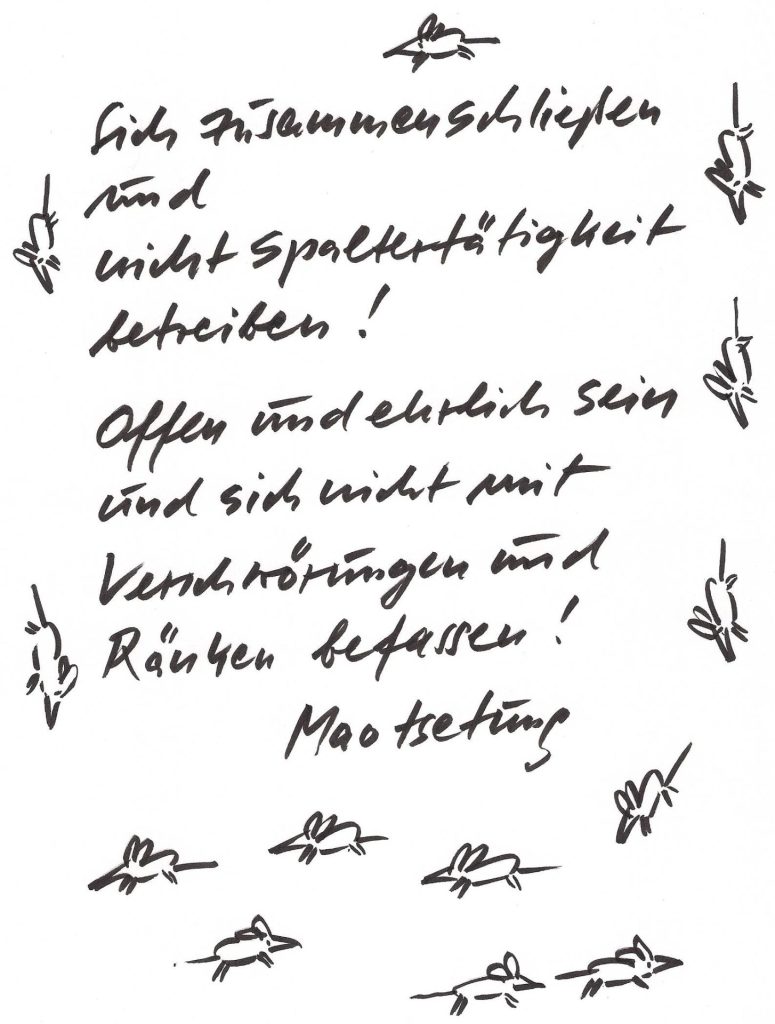 Sich zusammenschließen
und
nicht Spaltertätigkeit
betreiben!
Offen und ehrlich sein
und sich nicht mit
Verschwörungen und
Ränken befassen!
Maotsetung